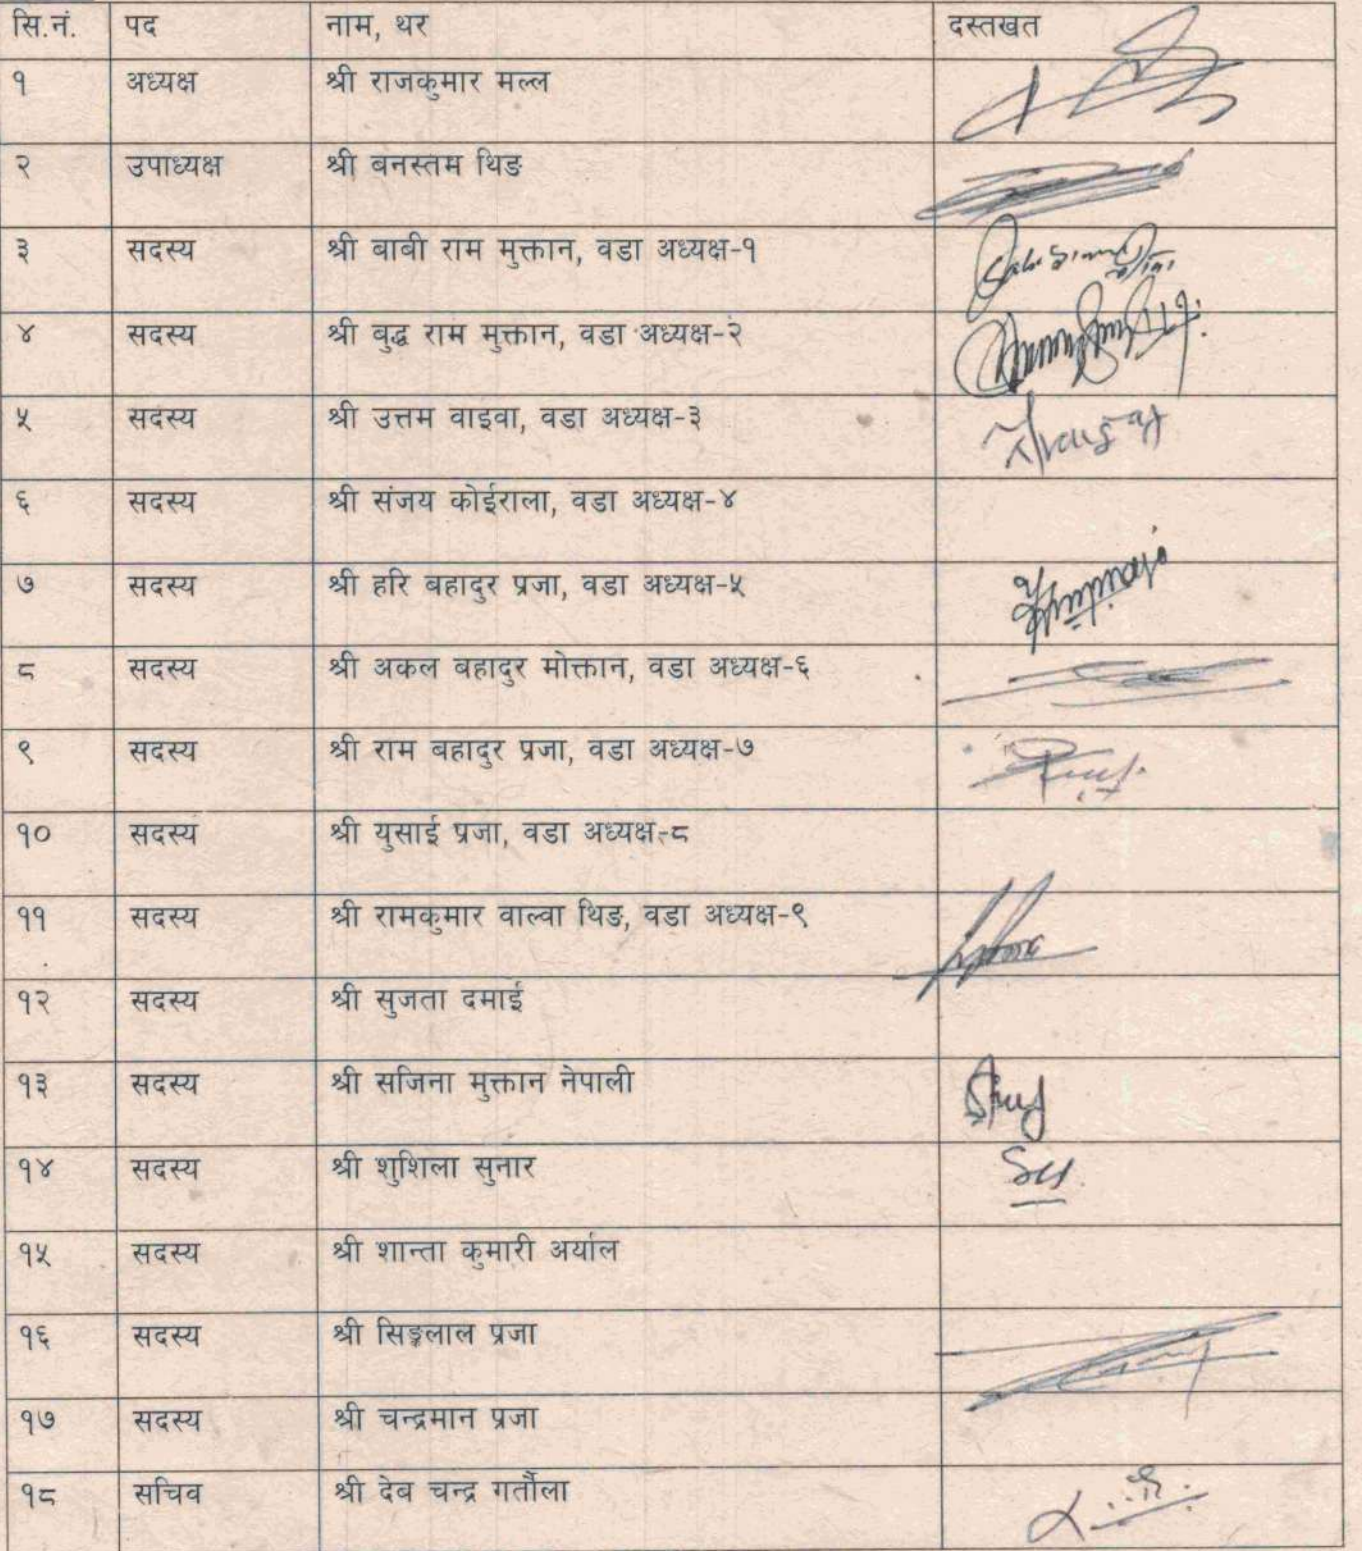 सि.नं. पद नाम, थर दस्तखत
१ अध्यक्ष श्री राजकुमार मल्ल
२ उपाध्यक्ष श्री बनस्तम थिङ
३ सदस्य श्री बाबी राम मुक्तान, वडा अध्यक्ष-१
४ सदस्य श्री बुद्ध राम मुक्तान, वडा अध्यक्ष-२
५ सदस्य श्री उत्तम वाइवा, वडा अध्यक्ष-३
६ सदस्य श्री संजय कोईराला, वडा अध्यक्ष-४
७ सदस्य श्री हरि बहादुर प्रजा, वडा अध्यक्ष-५
८ सदस्य श्री अकल बहादुर मोक्तान, वडा अध्यक्ष-६
९ सदस्य श्री राम बहादुर प्रजा, वडा अध्यक्ष-७
१० सदस्य श्री युसाई प्रजा, वडा अध्यक्ष-८
११ सदस्य श्री रामकुमार वाल्वा थिङ, वडा अध्यक्ष-९
१२ सदस्य श्री सुजता दमाई
१३ सदस्य श्री सजिना मुक्तान नेपाली
१४ सदस्य श्री शुशिला सुनार
१५ सदस्य श्री शान्ता कुमारी अर्याल
१६ सदस्य श्री सिङ्गलाल प्रजा
१७ सदस्य श्री चन्द्रमान प्रजा
१८ सचिव श्री देब चन्द्र गर्तौला